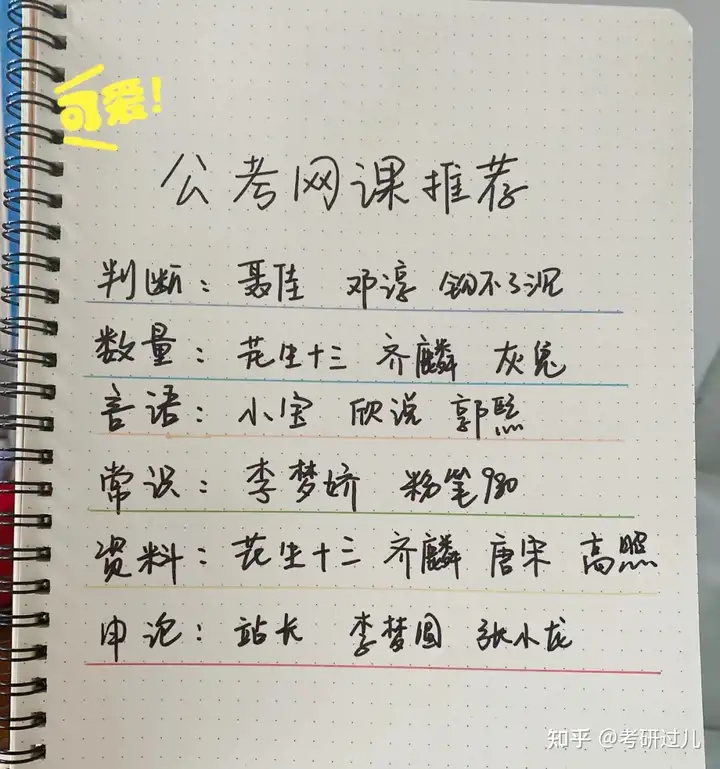 可爱!
公考网课推荐
判断：聂佳 邓淳 钢不了沉
数量：花生十三 齐麟 灰兔
言语：小宝 欣说 郭熙
常识：李梦娇 粉笔980
资料：花生十三 齐麟 唐宋 高照
申论：站长 李梦圆 张小龙
知乎 @考研过儿